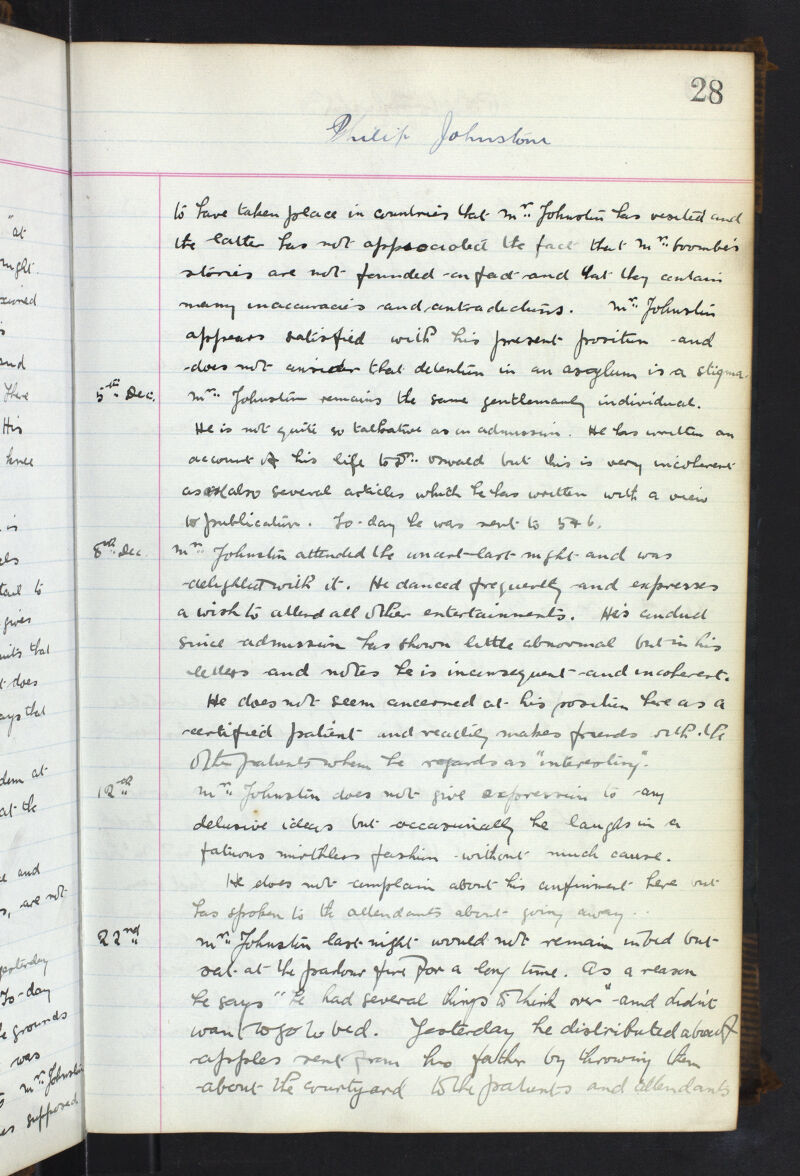 28
Philip Johnston
to have taken place in countries that Mr. Johnston has visited and
the latter has not appreciated the fact that Mr. Coombe's
stories are not founded on fact and that they contain
many inaccuracies and contradictions. Mr. Johnston
appears satisfied with his present position and
does not consider that detention in an asylum is a stigma.
5th Dec. Mr. Johnston remains the same gentlemanly individual.
He is not quite so talkative as on admission. He has written an
account of his life to Dr. Oswald but this is very incoherent
as are also several articles which he has written with a view
to publication. To-day he was sent to
8th Dec. Mr. Johnston attended the concert last night and was
delighted with it. He danced frequently and expresses
a wish to attend all other entertainments. His conduct
since admission has shown little abnormal but in his
letters and notes he is inconsequent and incoherent.
He does not seem concerned at his position here as a
certified patient and readily makes friends with the
other patients whom he regards as "interesting".
12th Mr. Johnston does not give expression to any
delusive ideas but occasionally he laughs in a
fatuous mirthless fashion without much cause.
He does not complain about his confinement here but
has spoken to the attendants about going away..
22nd Mr. Johnston last night would not remain in bed but
sat at the parlour fire for a long time. As a reason
he says "he had several things to think over" and didn't
want to go to bed. Yesterday he distributed about
apples sent from his father by throwing them
about the courtyard to the patients and attendants
"at
night.
and
There
His
knee
is
tail to
gives
that
does
says that
at
at the
and
are not
yesterday
To-day
grounds
was
Mr. Johnston
supposed